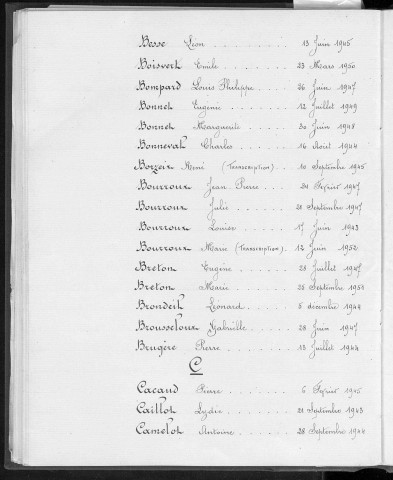 Besse Léon . . . . . . . . 13 Juin 1945
Boisvert Emile . . . . . . . . 23 Mars 1950
Bompard Louis Philippe . . . . 26 Juin 1947
Bonnet Eugénie . . . . . . . . 12 Juillet 1949
Bonnet Marguerite . . . . . . 30 Juin 1948
Bonneval Charles . . . . . . . 16 Août 1944
Borzeix Rémi (Transcription) . . 10 Septembre 1945
Bourroux Jean Pierre . . . . 21 Février 1947
Bourroux Julie . . . . . . 21 Septembre 1947
Bourroux Louise . . . . . . 17 Juin 1943
Bourroux Marie (Transcription) . 12 Juin 1952
Breton Eugène . . . . . . 28 Juillet 1947
Breton Marie . . . . . . 25 Septembre 1951
Brondeil Léonard . . . . . . 5 décembre 1944
Brousseloux Gabrielle . . . . . 28 Juin 1947
Brugère Pierre . . . . . . . 13 Juillet 1944
C
Cacaud Pierre . . . . . . . 6 Février 1945
Caillot Lydie . . . . . . . 21 Septembre 1943
Camelot Antoine . . . . . . 28 Septembre 1944